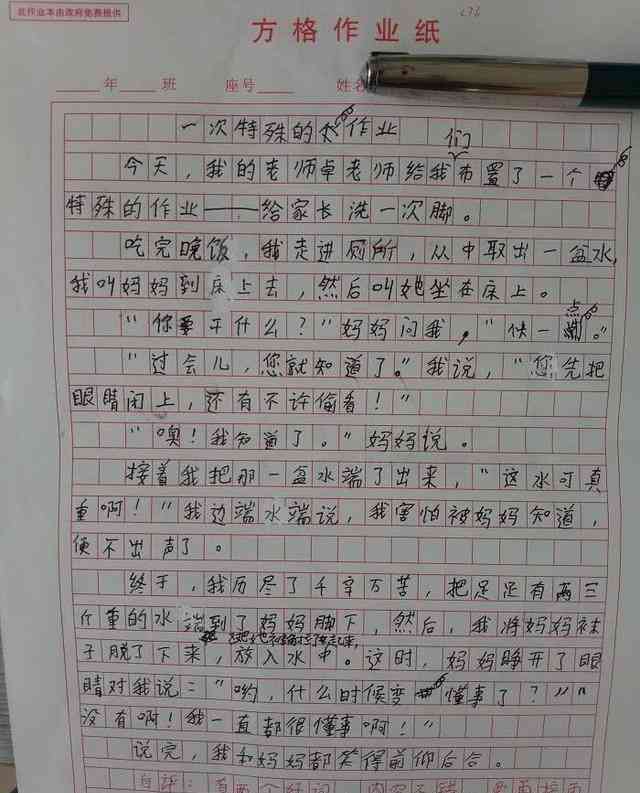 此作业本由政府免费提供
方格作业纸
年 班 座号 姓名
一次特殊的作业
们
今天，我的老师卓老师给我布置了一个
特殊的作业——给家长洗一次脚。
吃完晚饭，我走进厕所，从中取出一盆水，
我叫妈妈到床上去，然后叫她坐在床上。
点
“你要干什么？”妈妈问我，“快一。”
“过会儿，您就知道了。”我说，“您先把
眼睛闭上，还有不许偷看！”
“噢！我知道了。”妈妈说。
接着我把那一盆水端了出来，“这水可真
重啊！”我边端水端说，我害怕被妈妈知道，
便不出声了。
终于，我历尽了千辛万苦，把足足有两三
斤重的水端到了妈妈脚下，然后，我将妈妈袜
子脱了下来，放入水中。这时，妈妈睁开了眼
睛对我说：“哟，什么时候变懂事了？”“
没有啊！我一直都很懂事啊！”
说完，我和妈妈都笑得前仰后合。